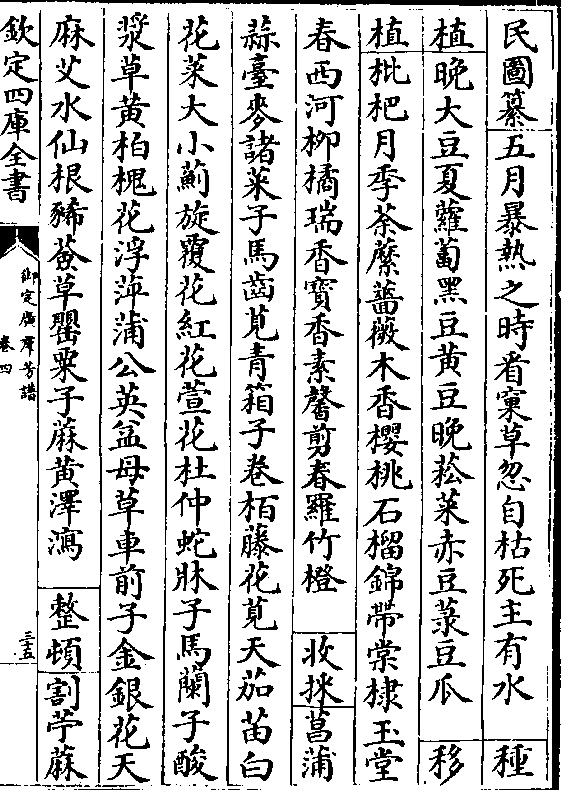 民圖纂五月暴熱之時看窠草忽自枯死主有水種
植晚大豆夏蘿蔔黑豆黃豆晚菘菜赤豆菉豆瓜移
植枇杷月季荼䕷薔薇木香櫻桃石榴錦帶棠棣玉堂
春西河柳橘瑞香寶香素馨剪春羅竹橙收採菖蒲
蒜臺麥諸菜子馬齒莧青箱子卷栢藤花莧天茄苗白
花菜大小薊旋覆花紅花萱花杜仲蛇牀子馬蘭子酸
漿草黃柏槐花浮萍蒲公英益母草車前子金銀花天
麻艾水仙根豨薟草罌粟子蔴黃澤瀉整頓割苧蔴
欽定四庫全書
御定廣羣芳譜
卷四
三五